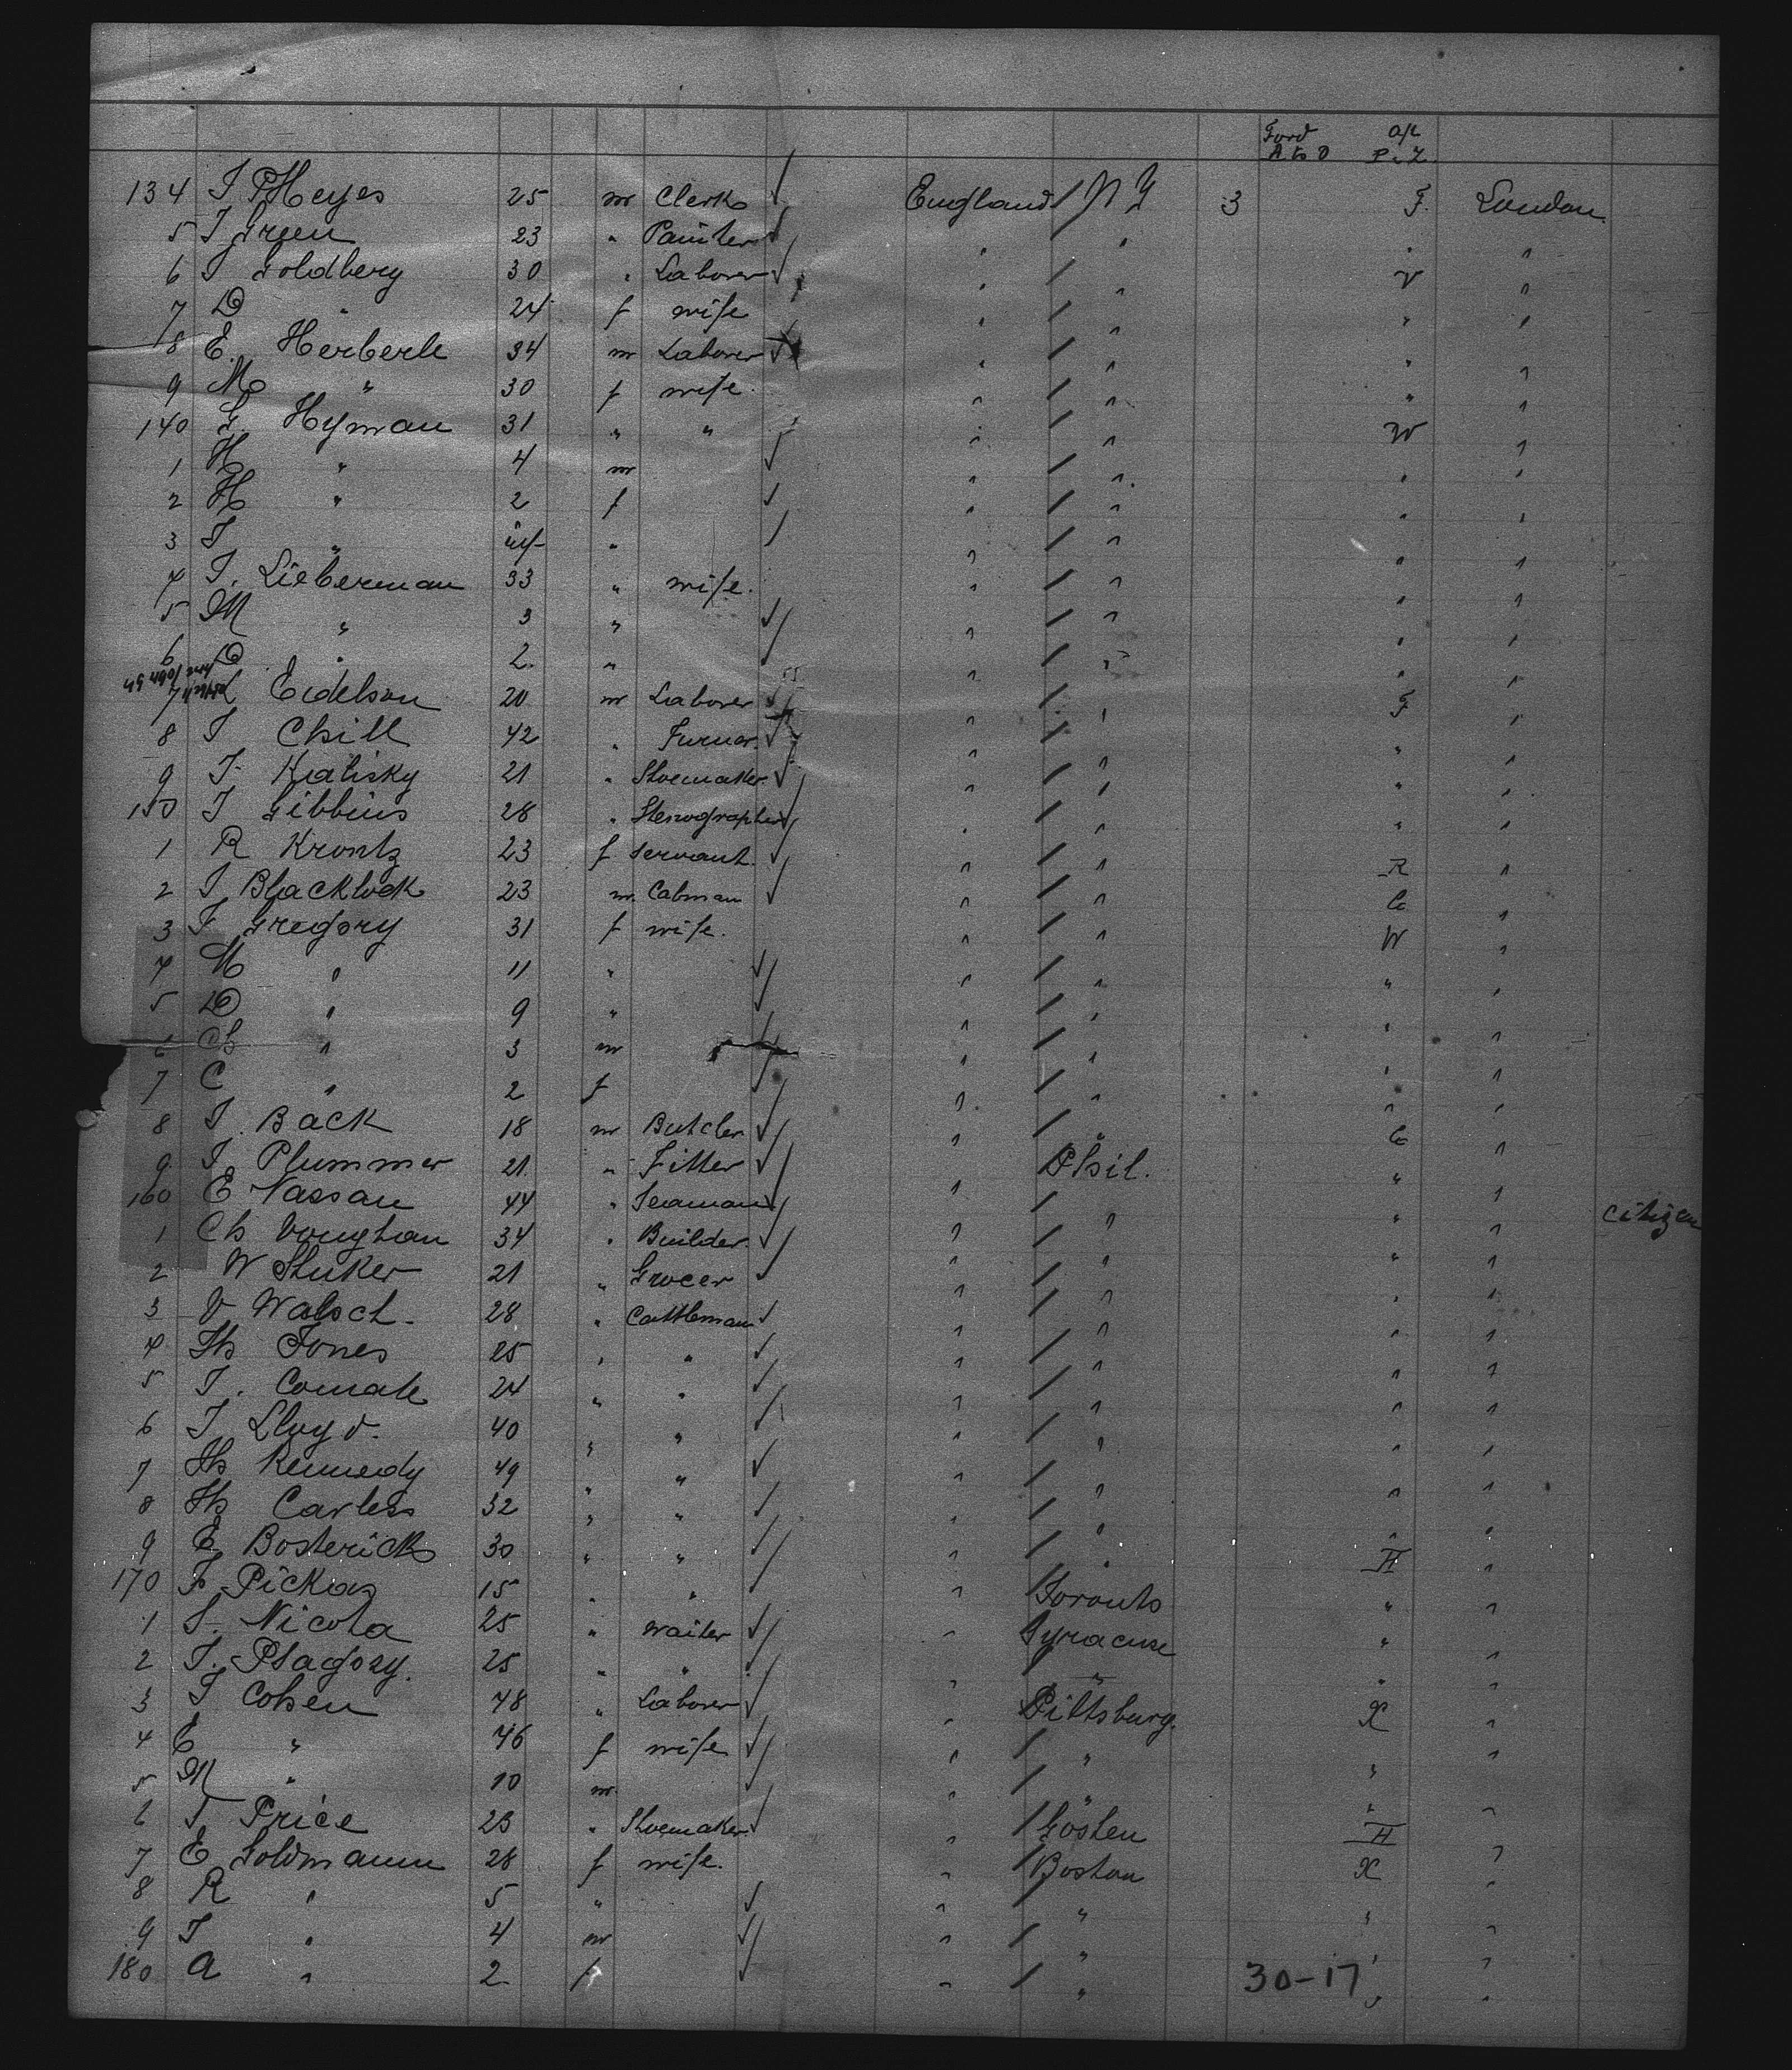 Ford a/c
A to D P. Z.
134 J P Heyes 25 m Clerk England N Y 3 F. London
5 J Green 23 " Painter " " " "
6 J Goldberg 30 " Laborer " " V "
7 D " 24 f wife " " " "
8 E. Herberle 34 m Laborer " " " "
9 M " 30 f wife " " " "
140 G. Hyman 31 " " " " W "
1 H " 4 m " " " "
2 H " 2 f " " " "
3 J " inf " " " " "
4 J. Lieberman 33 " wife. " " " "
5 M " 3 " " " " "
6 D " 2. " " " " "
7 L Eidelson 20 m Laborer " " F "
8 J Chill 42 " Turner " " " "
9 J. Katisky 21 " Shoemaker " " " "
150 J Gibbins 28 " Stenographer " " " "
1 R Krontz 23 f Servant. " " R "
2 J Blacklock 23 m. Cabman " " C "
3 F Gregory 31 f wife. " " W "
4 M " 11 " " " " "
5 D " 9 " " " " "
6 Ch " 3 m " " " "
7 C " 2 f " " " "
8 J. Back 18 m Butcher " " C "
9 J. Plummer 21 " Fitter " Phil. " "
160 E Nassau 44 " Seaman " " " " citizen
1 Ch Voughan 34 " Builder " " " "
2 W Stuker 21 " Grocer " " " "
3 V Walsch 28 " Cattleman " " " "
4 Th Jones 25 " " " " " "
5 J. Comate 24 " " " " " "
6 J. Lloyd. 40 " " " " " "
7 Th Kennedy 49 " " " " " "
8 Th Carless 32 " " " " " "
9 E Bosterick 30 " " " " H "
170 F. Pickas 15 " " " Toronto " "
1 S. Nicola 25 " Waiter " Syracuse " "
2 J. Plagosy. 25 " " " " " "
3 J Cohen 48 " Laborer " Pittsburg. X "
4 E " 46 f wife " " " "
5 M " 10 m. " " " "
6 J Price 23 " Shoemaker " Gosten H "
7 E Goldmann 28 f wife. " Boston X "
8 R " 5 " " " " "
9 J " 4 m " " " "
180 A " 2 f " " 30-17 " "